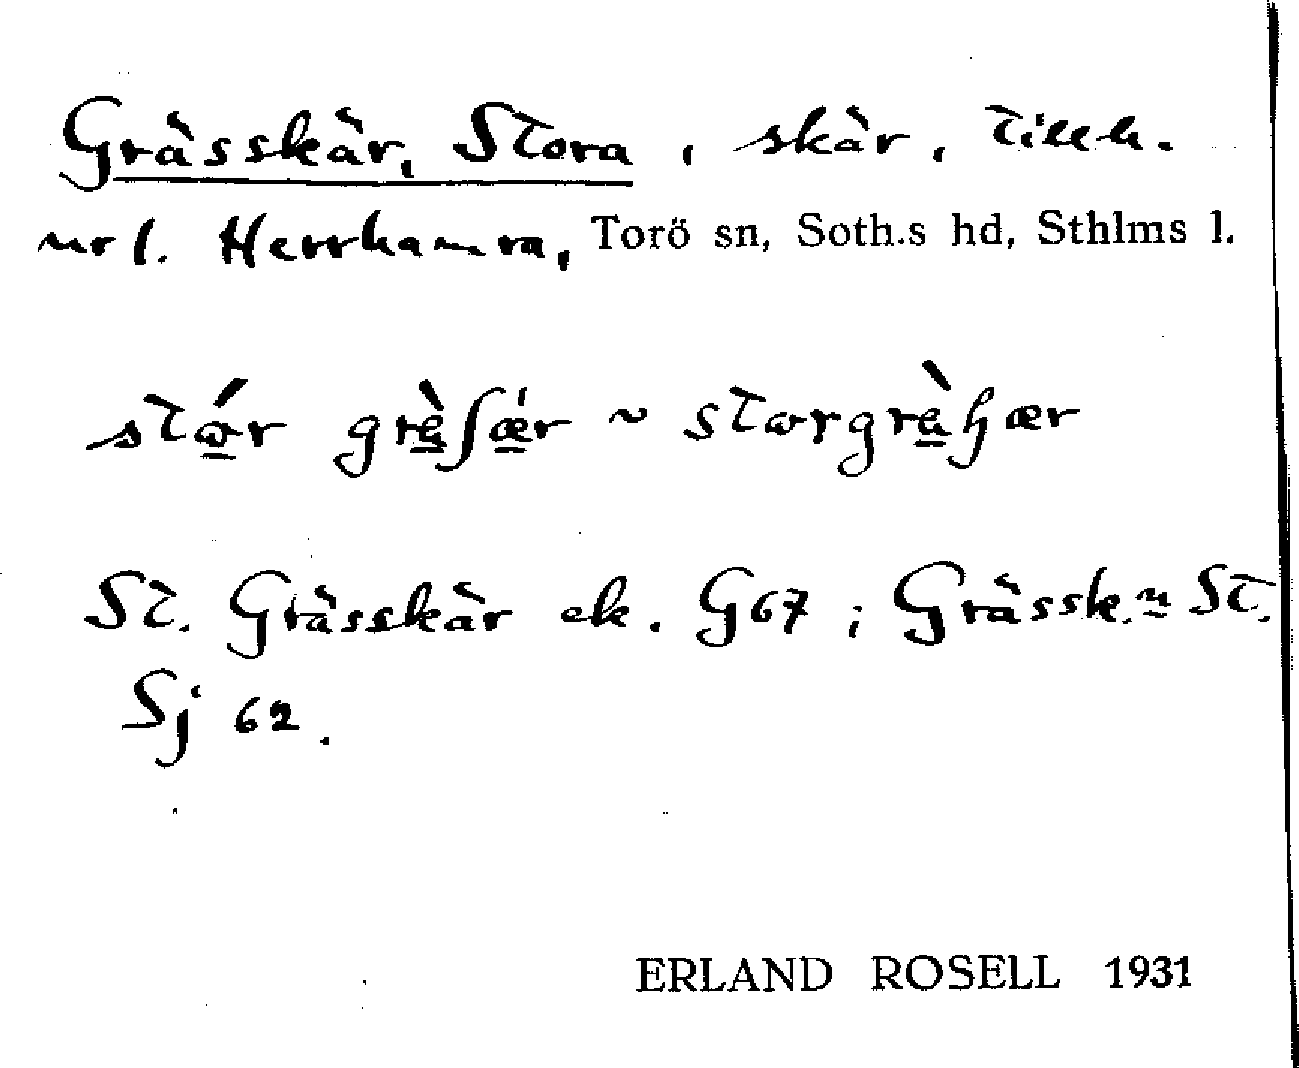 Grässkär, Stora, skär, tillh.
nr 1. Herrhamra, Torö sn, Soth.s hd, Sthlms l.
St. Grässkär ek. G67; Grässk. n St.
Sj 62.
ERLAND ROSELL 1931